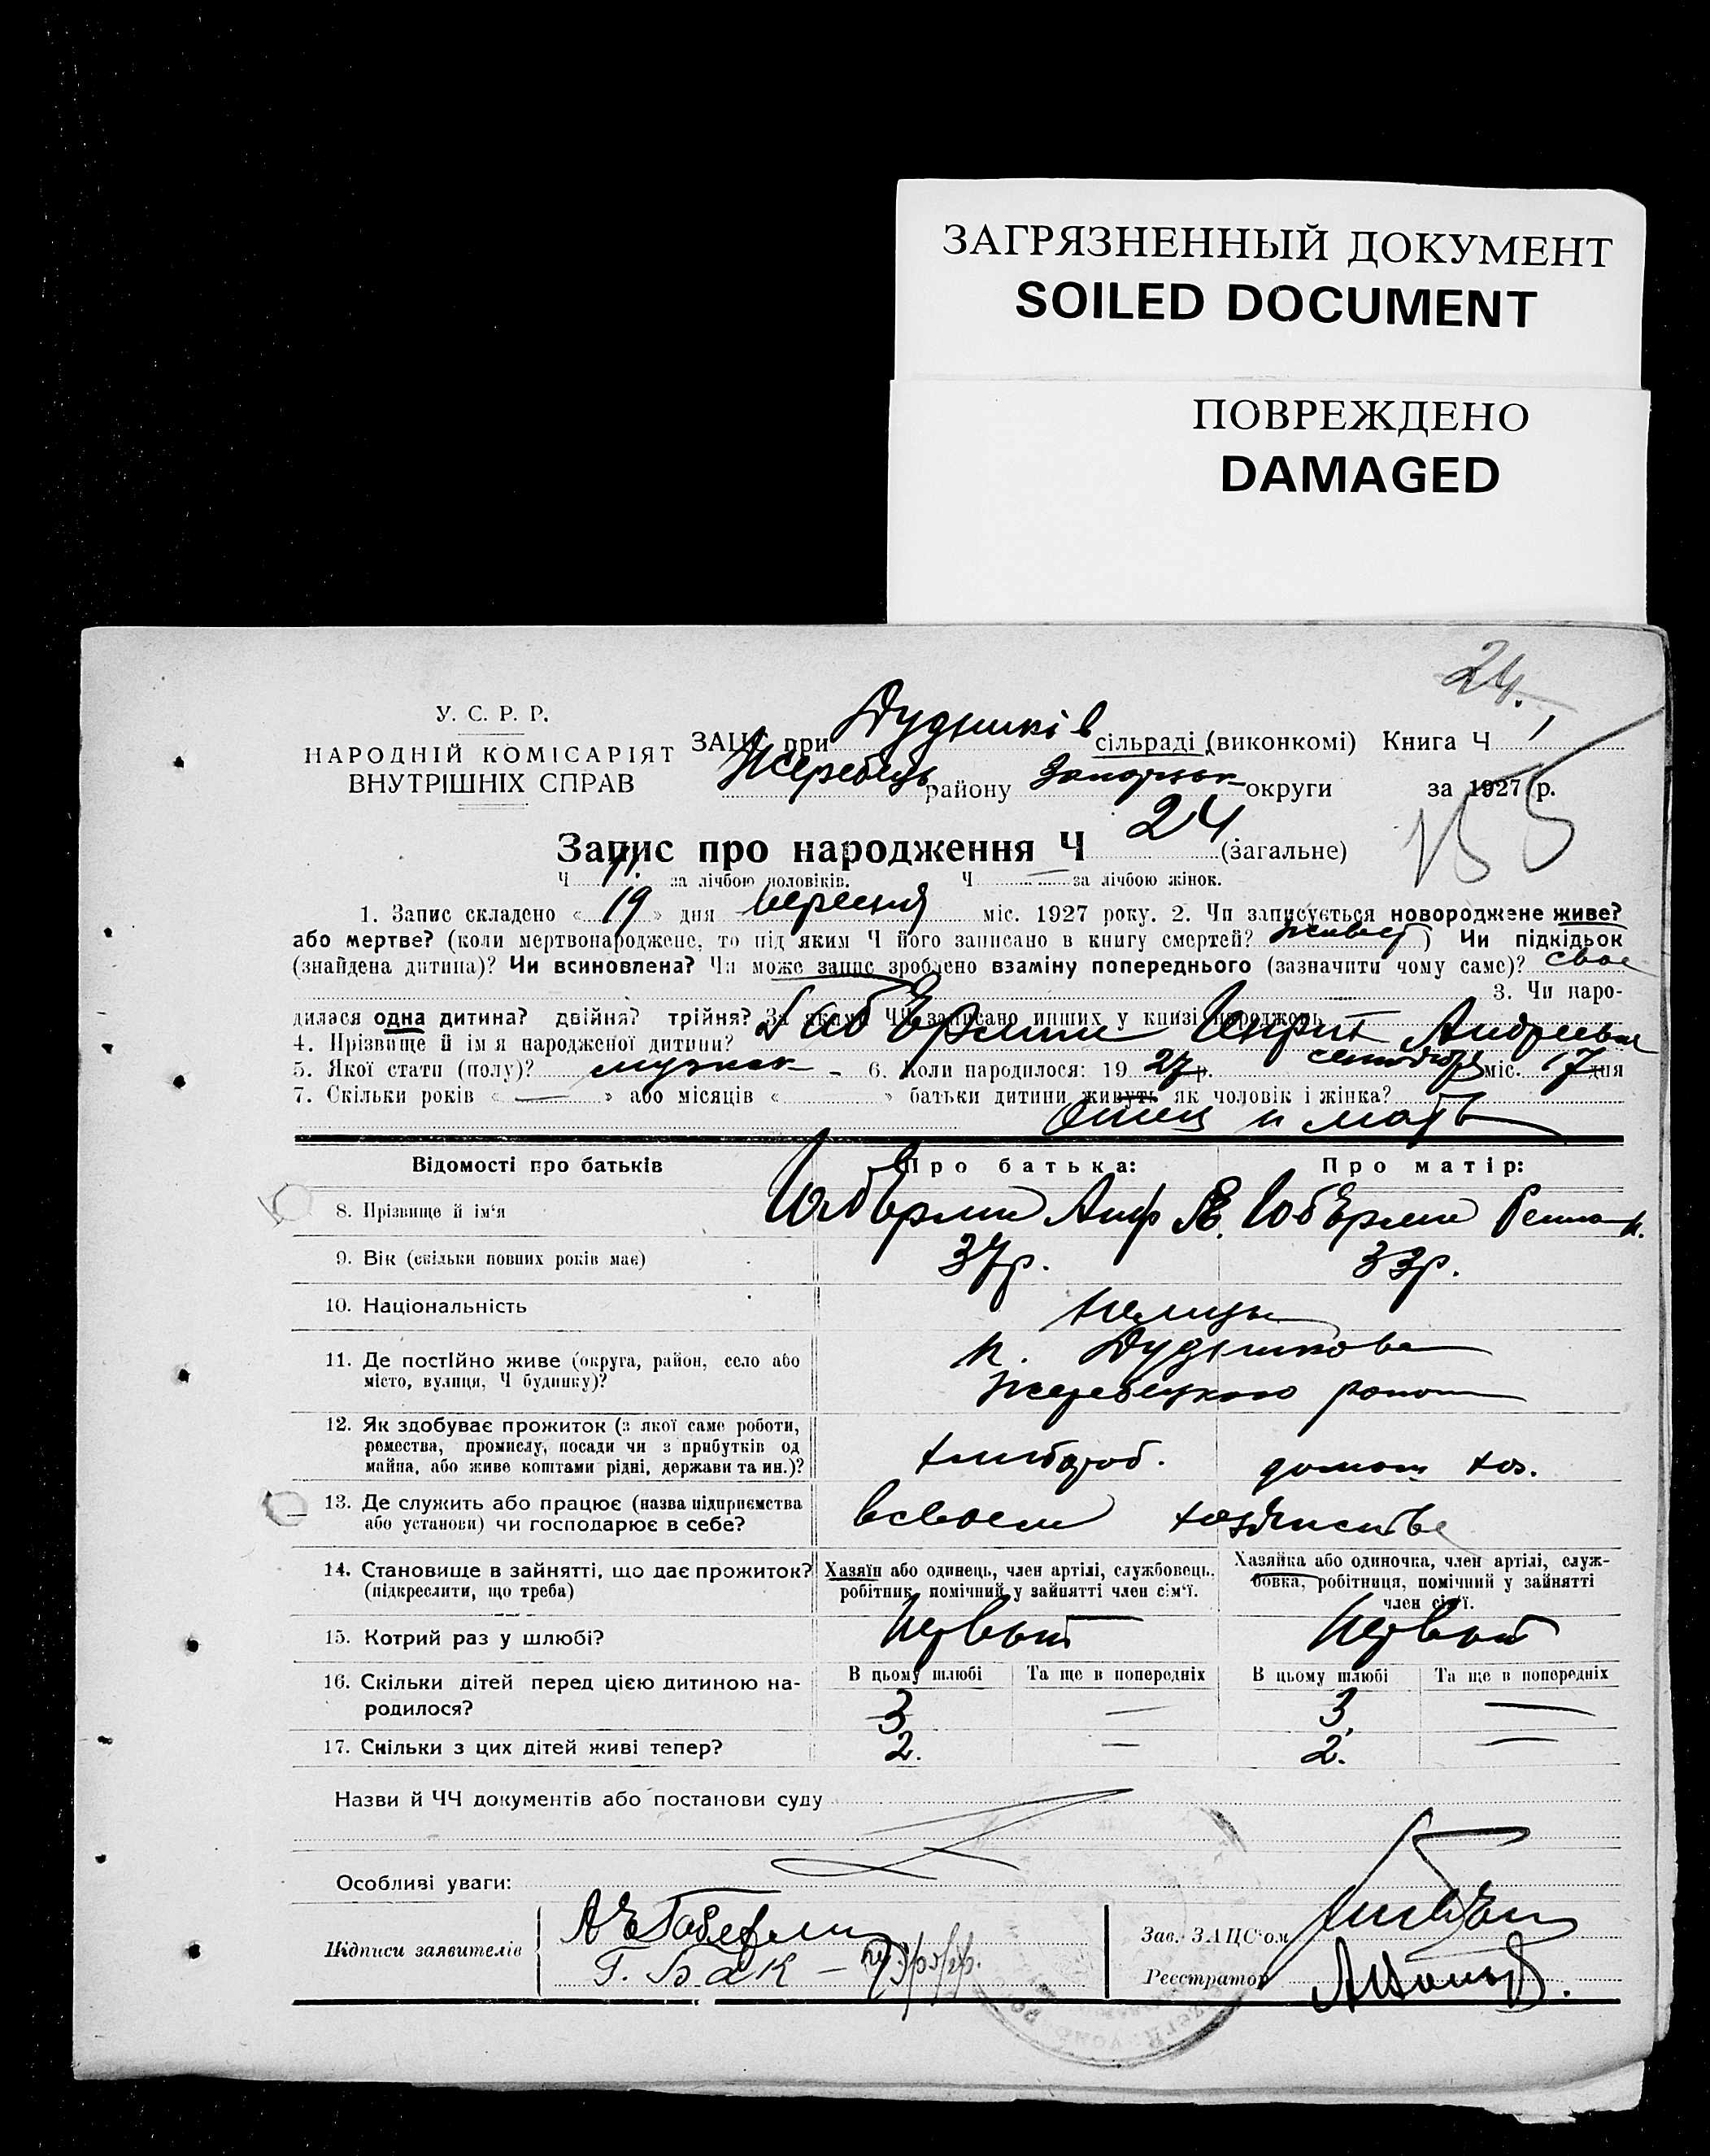 ЗАГРЯЗНЕННЫЙ ДОКУМЕНТ
SOILED DOCUMENT
ПОВРЕЖДЕНО
DAMAGED
24.
У. С. Р. Р.
НАРОДНІЙ КОМІСАРІЯТ
ВНУТРІШНІХ СПРАВ
ЗАЦС при Дудників сільраді (виконкомі) Книга Ч 1
Жеребець району Запорізьк округи за 1927 р.
155
Запис про народження Ч 24 (загальне)
Ч 11. за лічбою чоловіків. Ч — за лічбою жінок.
1. Запис складено « 19 » дня вересня міс. 1927 року. 2. Чи записується новороджене живе?
або мертве? (коли мертвонароджене, то під яким Ч його записано в книгу смертей? ) Чи підкідьок
(знайдена дитина)? Чи всиновлена? Чи може запис зроблено взаміну попереднього (зазначити чому саме)? свое
3. Чи наро-
дилася одна дитина? двійня? трійня? За якими ЧЧ записано инших у книзі народжень
4. Прізвище й ім'я народженої дитини? Андреевич
5. Якої стати (полу)? мужск - 6. Коли народилося: 19 27 р. сентября міс. 17 дня
7. Скільки років « — » або місяців « » батьки дитини живуть як чоловік і жінка?
отец и мать
Відомості про батьків Про батька: Про матір:
8. Прізвище й ім'я
9. Вік (скільки повних років має) 37р. 33р.
10. Національність немцы
11. Де постійно живе (округа, район, село або
місто, вулиця, Ч будинку)?
к. Дудникова
Жеребецкого район
12. Як здобуває прожиток (з якої саме роботи,
ремества, промислу, посади чи з прибутків од
майна, або живе коштами рідні, держави та ин.)?
хлібороб. домаш хоз.
13. Де служить або працює (назва підприємства
або установи) чи господарює в себе?
всвоем хозяистве
14. Становище в зайнятті, що дає прожиток?
(підкреслити, що треба)
Хазяїн або одинець, член артілі, службовець,
робітник, помічний у зайнятті член сім'ї.
Хазяйка або одиночка, член артілі, служ-
бовка, робітниця, помічний у зайнятті
член сім'ї.
15. Котрий раз у шлюбі? Первый Первый
В цьому шлюбі Та ще в попередніх В цьому шлюбі Та ще в попередніх
16. Скільки дітей перед цією дитиною на-
родилося?
3 — 3. —
17. Скільки з цих дітей живі тепер? 2. — 2. —
Назви й ЧЧ документів або постанови суду
Особливі уваги:
Підписи заявителів
Г. Бак —
Зав. ЗАЦС'ом
Реєстратор